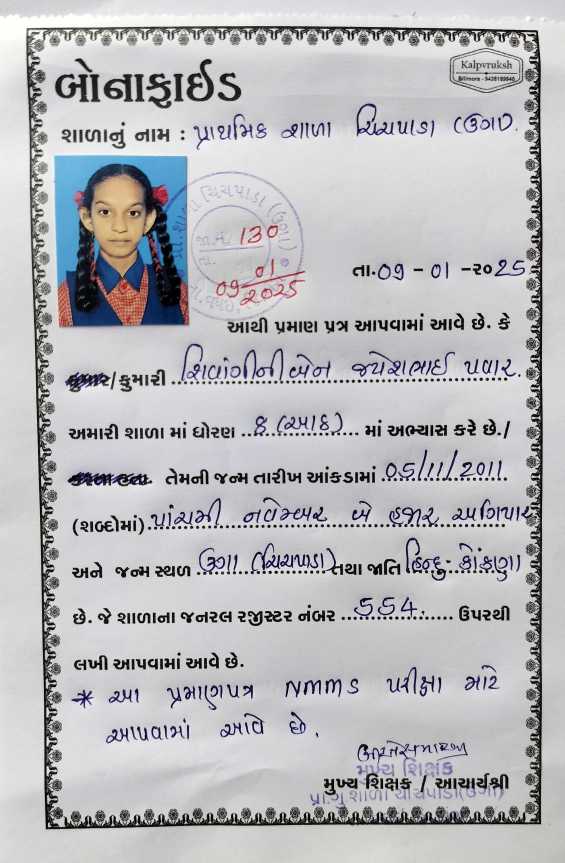 બોનાફાઈડ
Kalpvruksh
શાળાનું નામ : પ્રાથમિક શાળા ચિચપાડા (ઉગા).
જા.નં. 130
09-01-2025
તા. 09 - 01 -૨૦25
આથી પ્રમાણ પત્ર આપવામાં આવે છે. કે
કુમાર/કુમારી શિવાંગીનીબેન જયેશભાઈ પવાર.
અમારી શાળા માં ધોરણ ..8 (આઠ)... માં અભ્યાસ કરે છે./
કરતા હતા. તેમની જન્મ તારીખ આંકડામાં .05/11/2011
(શબ્દોમાં) પાંચમી નવેમ્બર બે હજાર અગિયાર
અને જન્મ સ્થળ ઉગા (ચિચપાડા) તથા જાતિ હિન્દુ-કોંકણા
છે. જે શાળાના જનરલ રજીસ્ટર નંબર ...554... ઉપરથી
લખી આપવામાં આવે છે.
* આ પ્રમાણપત્ર NMMS પરીક્ષા માટે
આપવામાં આવે છે.
મુખ્ય શિક્ષક
મુખ્ય શિક્ષક / આચાર્યશ્રી